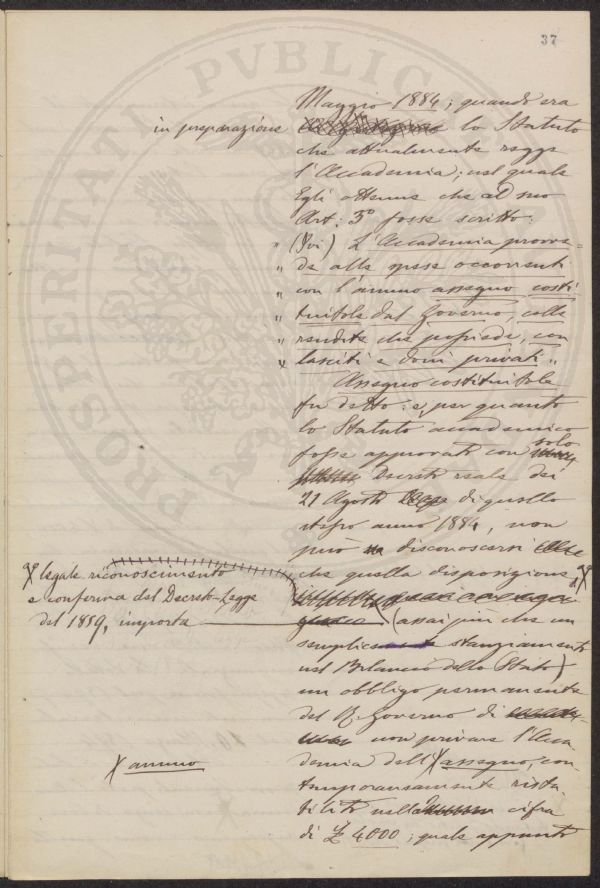 37
Maggio 1884; quando era
in preparazione lo Statuto
che attualmente regge
l'Accademia; nel quale
Egli ottenne che al suo
Art: 3º fosse scritto:
" (Ivi) L'Accademia provve-
" de alle spese occorrenti
" con l'annuo assegno costi-
" tuitole dal Governo, colle
" rendite che possiede, con
" lasciti e doni privati "
Assegno costituitole
fu detto: e per quanto
lo Statuto accademico
fosse approvato con solo
Decreto reale dei
21 Agosto di quello
stesso anno 1884, non
può disconoscersi
che quella disposizione
legale riconoscimento
e conferma del Decreto-Legge
del 1859, importa
(assai più che un
semplice stanziamento
nel Bilancio dello Stato)
un obbligo permanente
del R. Governo di
non privare l'Acca-
demia dell' annuo assegno, con-
temporaneamente rista-
bilito nella cifra
di £ 4000; quale appunto
PROSPERITATI PVBLICAE